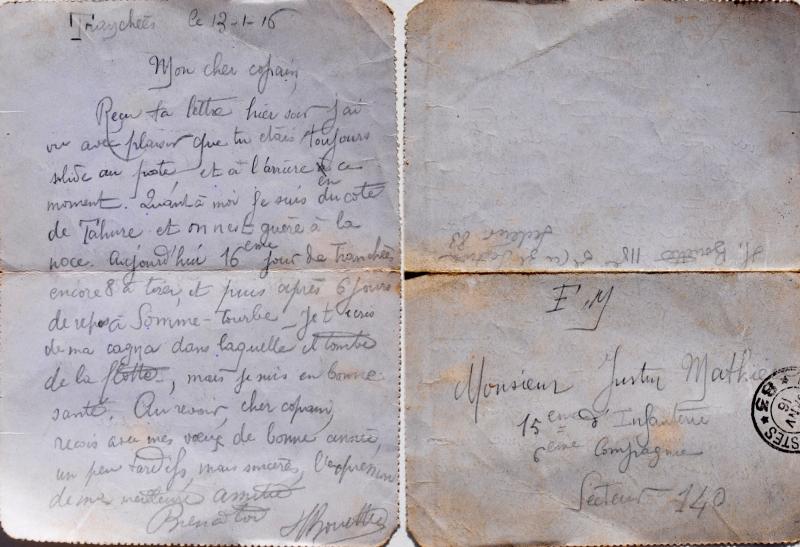 Tranchées le 13-1-16
Mon cher copain,
Reçu ta lettre hier soir j'ai
vu avec plaisir que tu étais toujours
solide au poste et à l'arrière en ce
moment. Quant à moi je suis du côté
de Tahure et on n'est guère à la
noce. Aujourd'hui 16ème jour de tranchées
encore 8 à tirer, et puis après 6 jours
de repos à Somme-tourbe. Je t'écris
de ma cagna dans laquelle il tombe
de la flotte, mais je suis en bonne
santé. Au revoir, cher copain,
reçois avec mes vœux de bonne année,
un peu tardifs mais sincères, l'expression
de ma meilleure amitié
Bien à toi HBouette
118e
Secteur 83
F.M
Monsieur Justin Mathie
15ème d'Infanterie
6ème Compagnie
Secteur 140
POSTES * 83 *
16